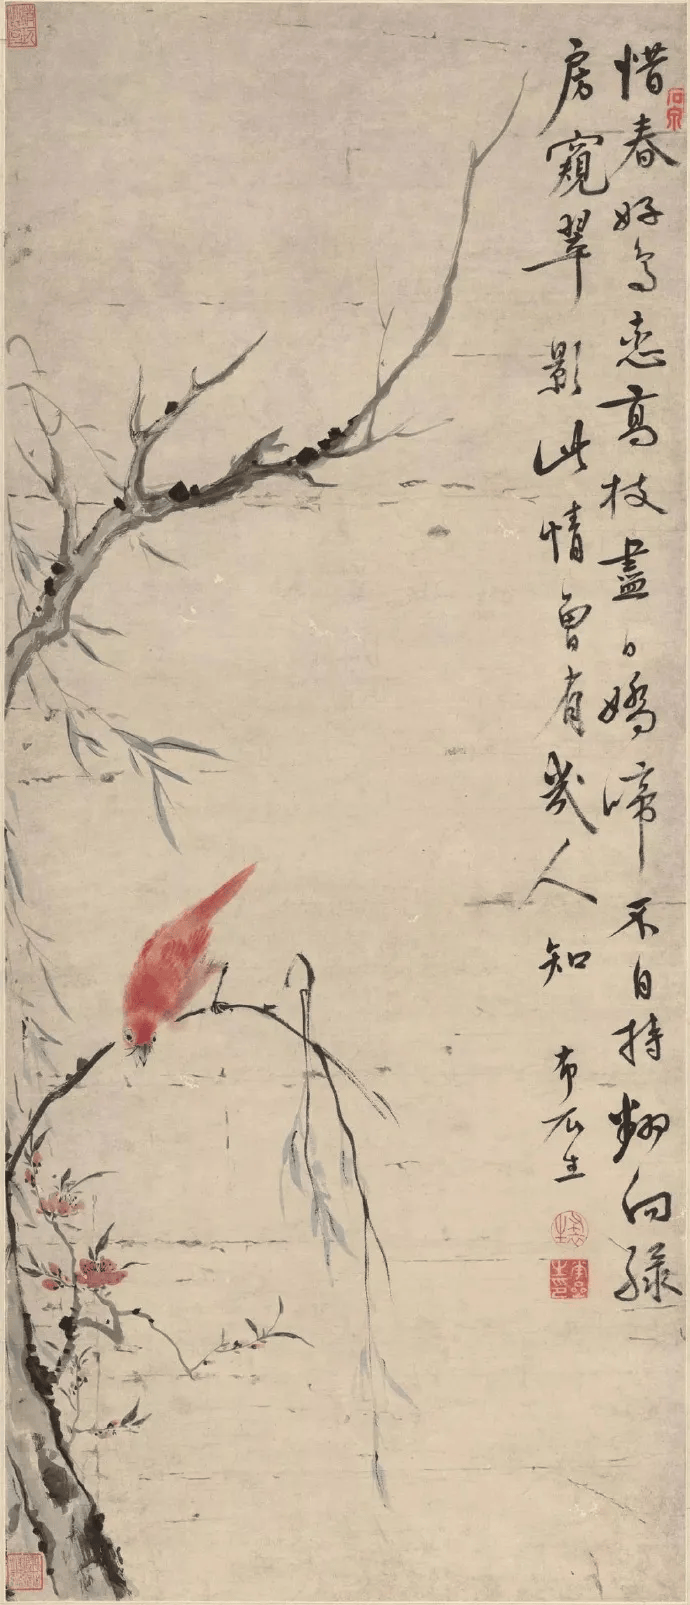 惜春好鳥恋高枝盡日嬌啼不自持翻向綠
房窺翠影此情曾有幾人知
布衣生